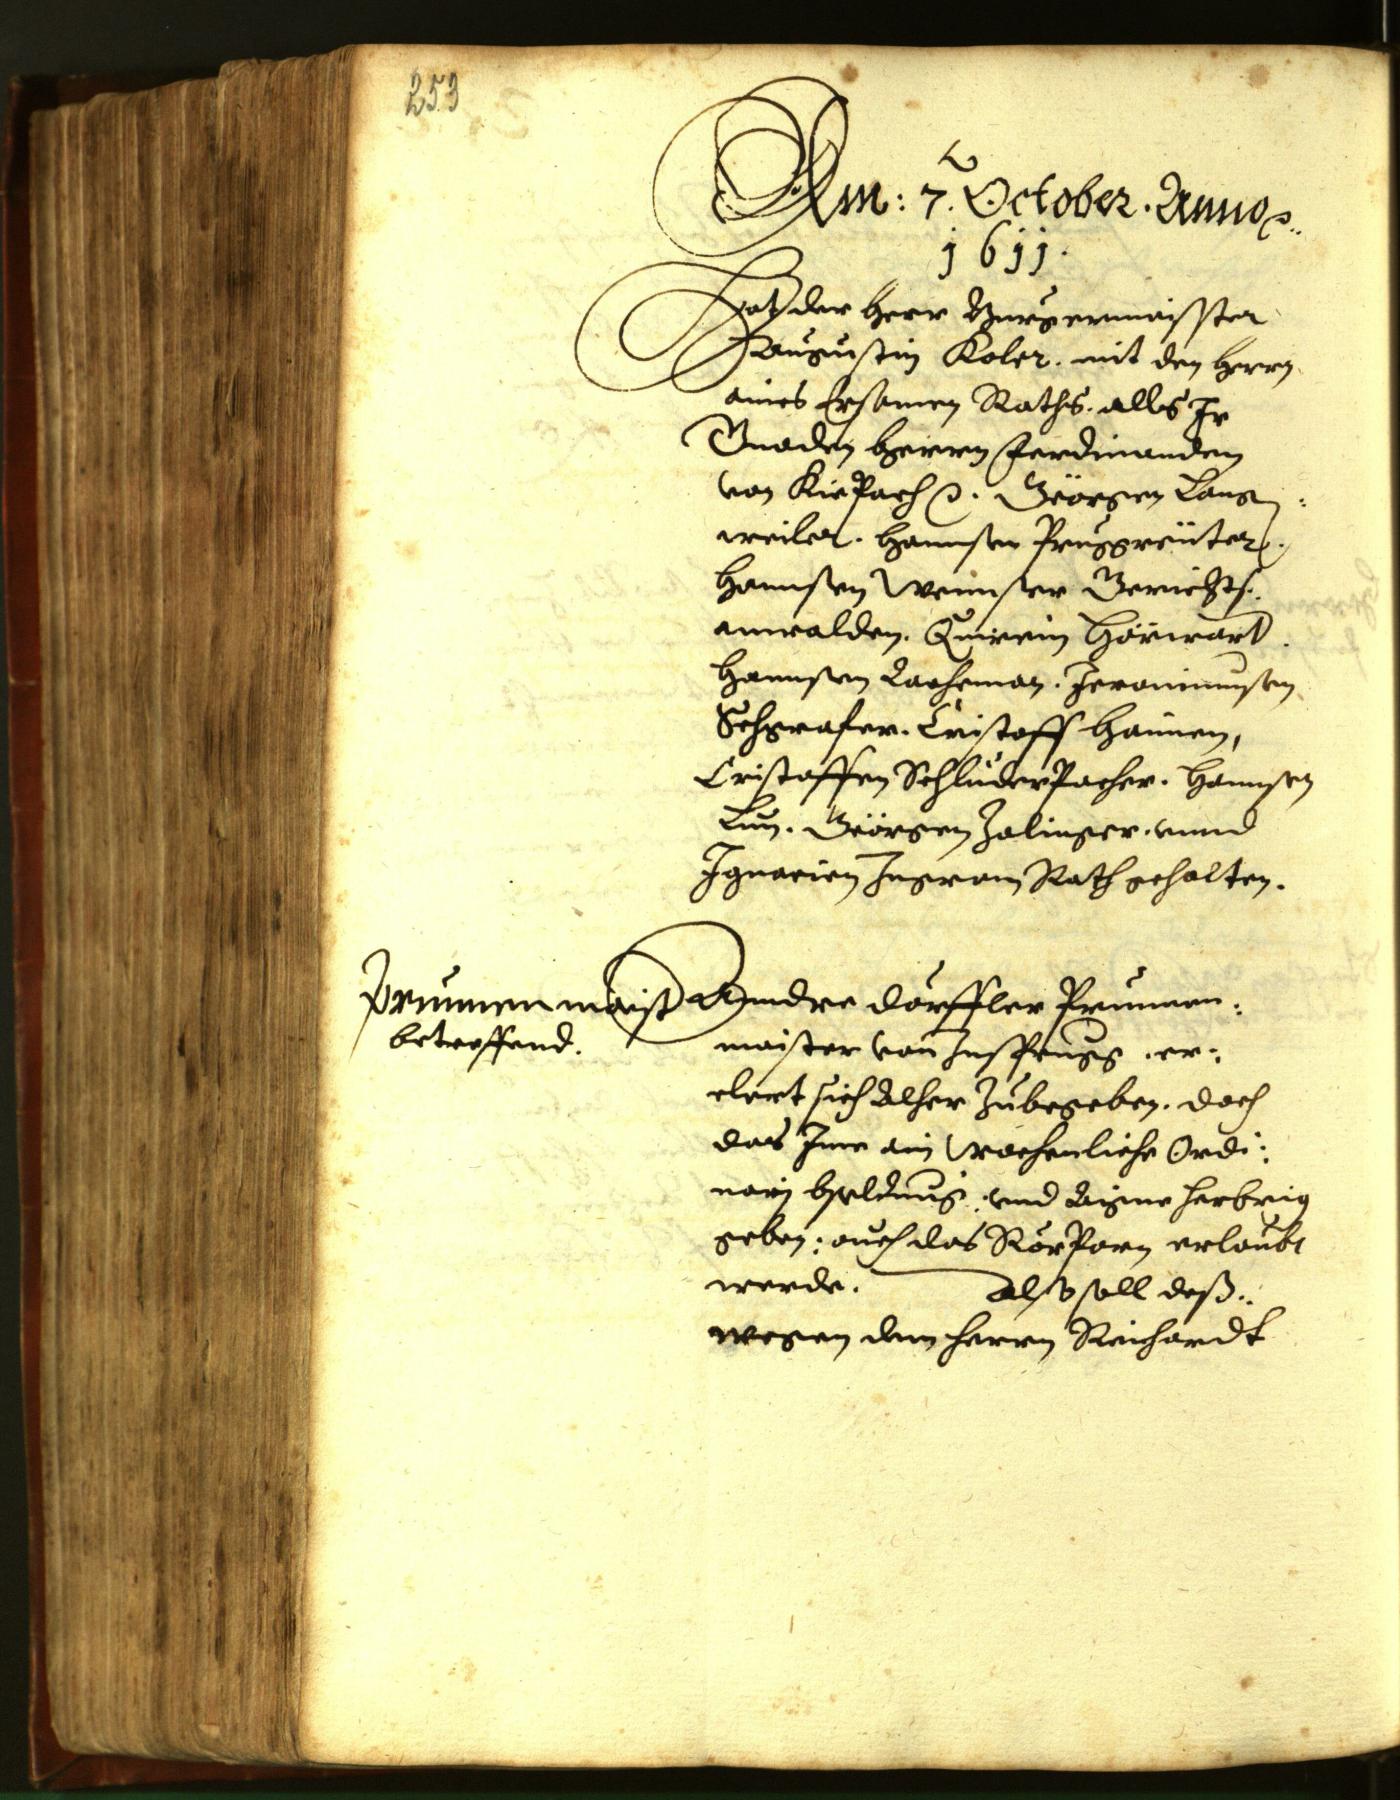 253
Am: 7. October. Anno
1611.
Hat der herr Burgermaisster
Augustin Koler. mit den herrn
aines Ersamen Raths. alls Ir
Gnaden herrn Ferdinanden
von Kiepach Geörgen Lang
weiler. Hannsen Pruggreüter.
Hannsen Wennser Gerichts
anwalden. Quirein Hörwart.
Hannsen Lacheman. Jeronimusen
Schgrafer. Cristoff Hainen,
Cristoffen Schluderpacher. Hannsen
Lun. Geörgen Zalinger. vnnd
Ignacien Ingram Rath gehalten.
Prunnenmaist
betreffend.
Anndre dorffler Prunnen:
maister von Insprugg. er:
clert sich Alher zubegeben. doch
das Ime ain Wochenliche Ordi:
narj bsoldung. vnd Aigne herbrig
geben: auch das RörParn erlaubt
werde. Also soll deß..
wegen dem herrn Reichardt